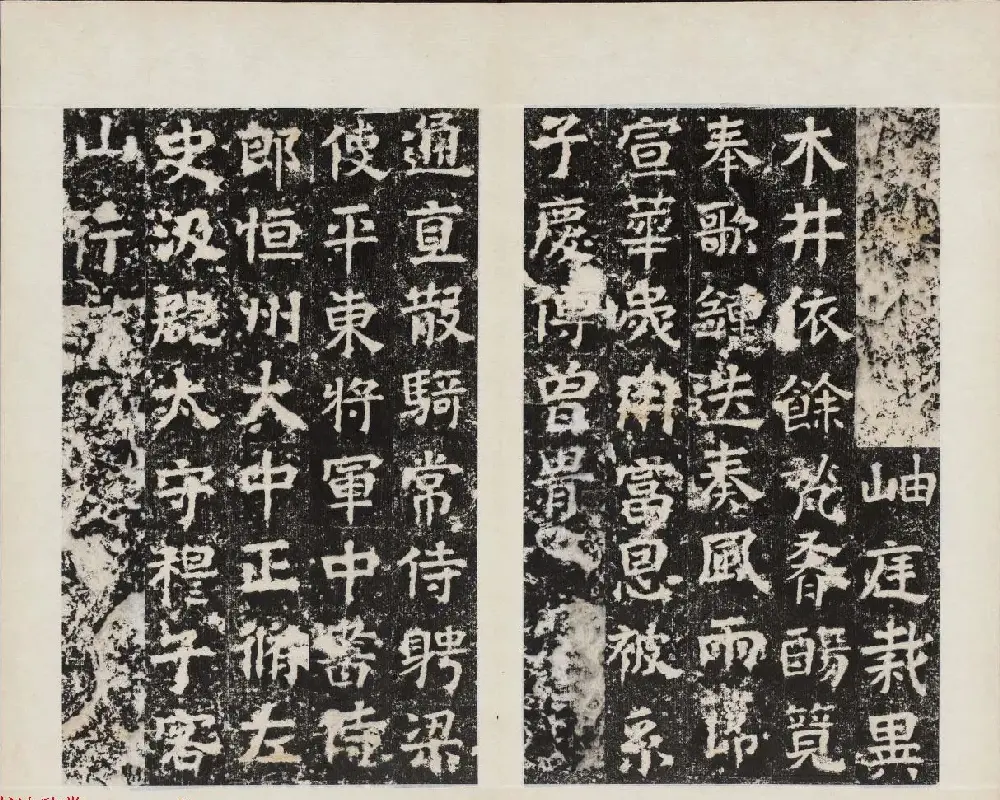 岫庭栽異
木井依餘春
奉歌鍾迭奏風雨節
宣華歲富恩被系
子慶傳曾冑
通直散騎常侍聘梁
使平東將軍中書侍
郎恒州大中正脩左
史汲郡太守穆子容
山行